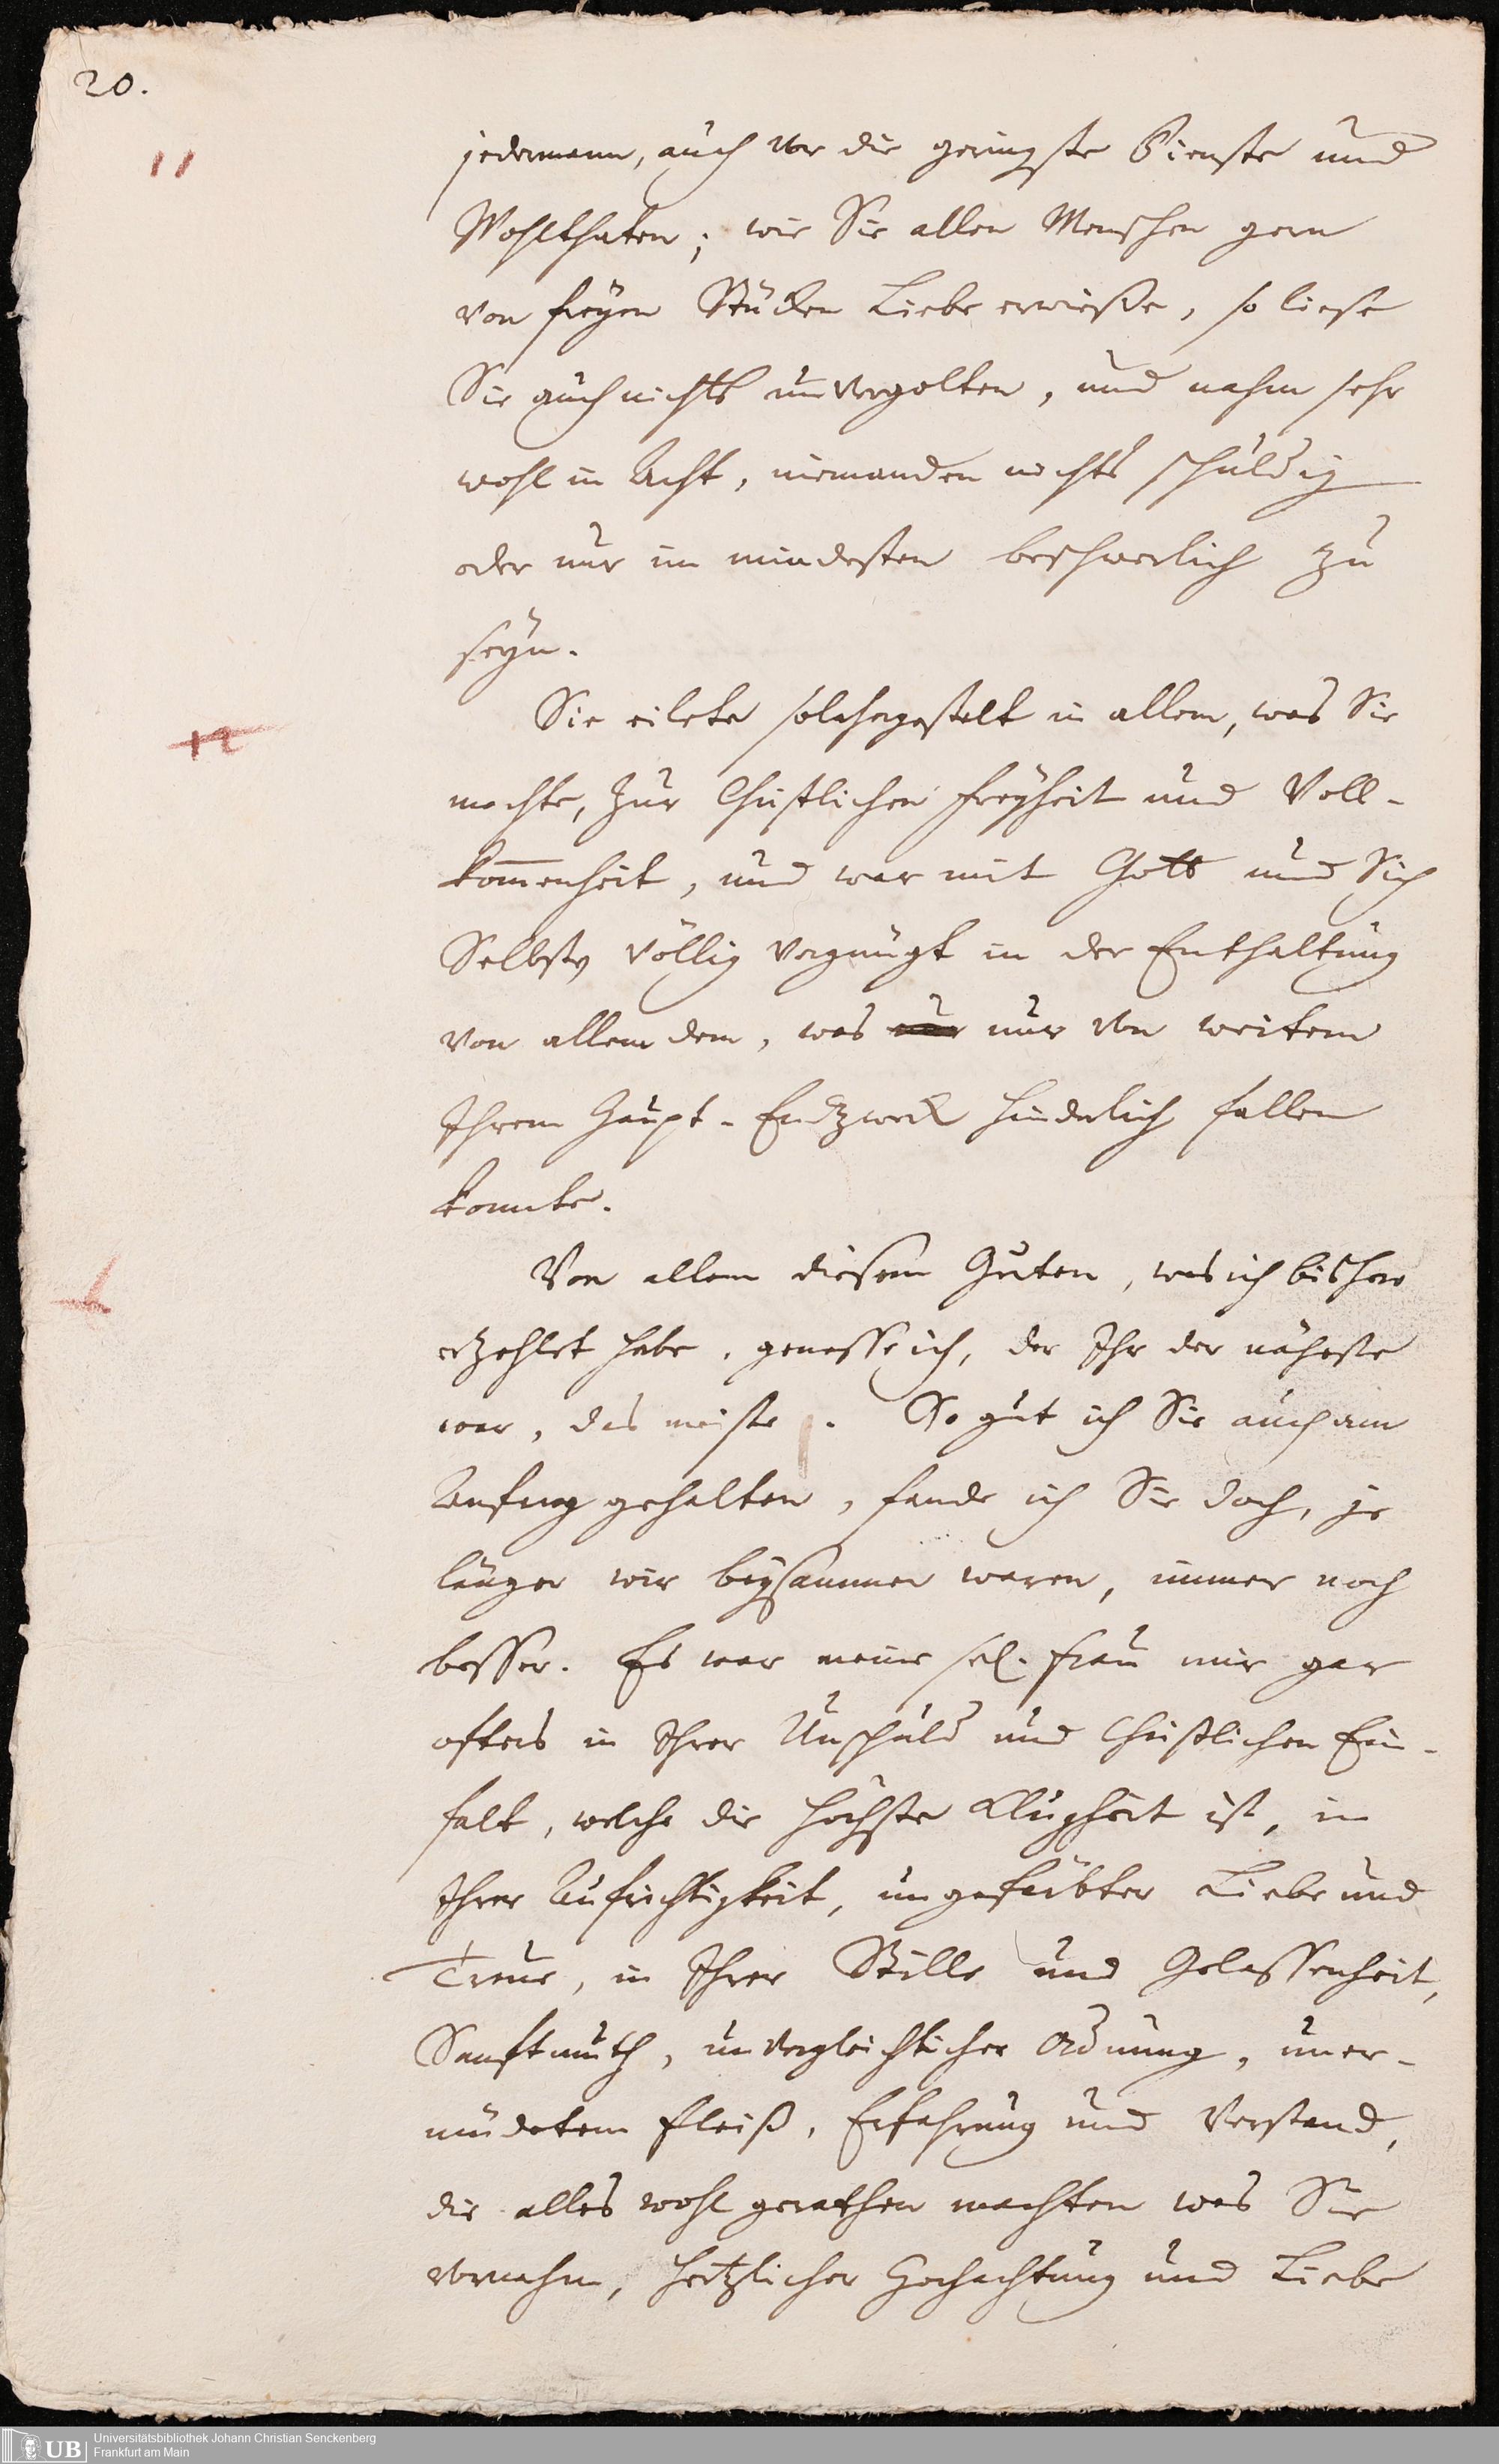 20.
11
jedermann, auch vor die geringste Dienste und
Wohlthaten; wie Sie allen Menschen gern
von freyen Stücken Liebe erwieße, so liese
Sie auch nichts unvergolten, und nahm sehr
wohl in Acht, niemanden nichts schuldig
oder nur im mindesten beschwerlich zu
seyn.
12
Sie eilete solchergestelt in allem, was Sie
machte, zur Christlichen freyheit und Voll-
kom̅enheit, und war mit Gott und Sich
Selbsten völlig vergnügt in der Enthaltung
von allem dem, was nur nur von weitem
Ihrem Haupt-Endzweck hinderlich fallen
konnte.
Von allem diesem Guten, was ich bisher
erzehlet habe, genosse ich, der Ihr der nächste
war, das meiste. So gut ich Sie auch am
Anfang gehalten, fande ich Sie doch, je
länger wir beysammen waren, immer noch
besser. Es war meine sel. frau mir gar
offters in Ihrer Unschuld und Christlichen Ein-
falt, welche die höchste Klugheit ist, in
Ihrer Aufrichtigkeit, ungefärbter Liebe und
Treue, in Ihrer Stille und Gelassenheit,
Sanftmuth, unvergleichlicher Ordnung, uner-
müdetem fleiß, Erfahrung und Verstand,
die alles wohl gerathen machten was Sie
vornahm, hertzlicher Hochachtung und Liebe
UB
Universitätsbibliothek Johann Christian Senckenberg
Frankfurt am Main